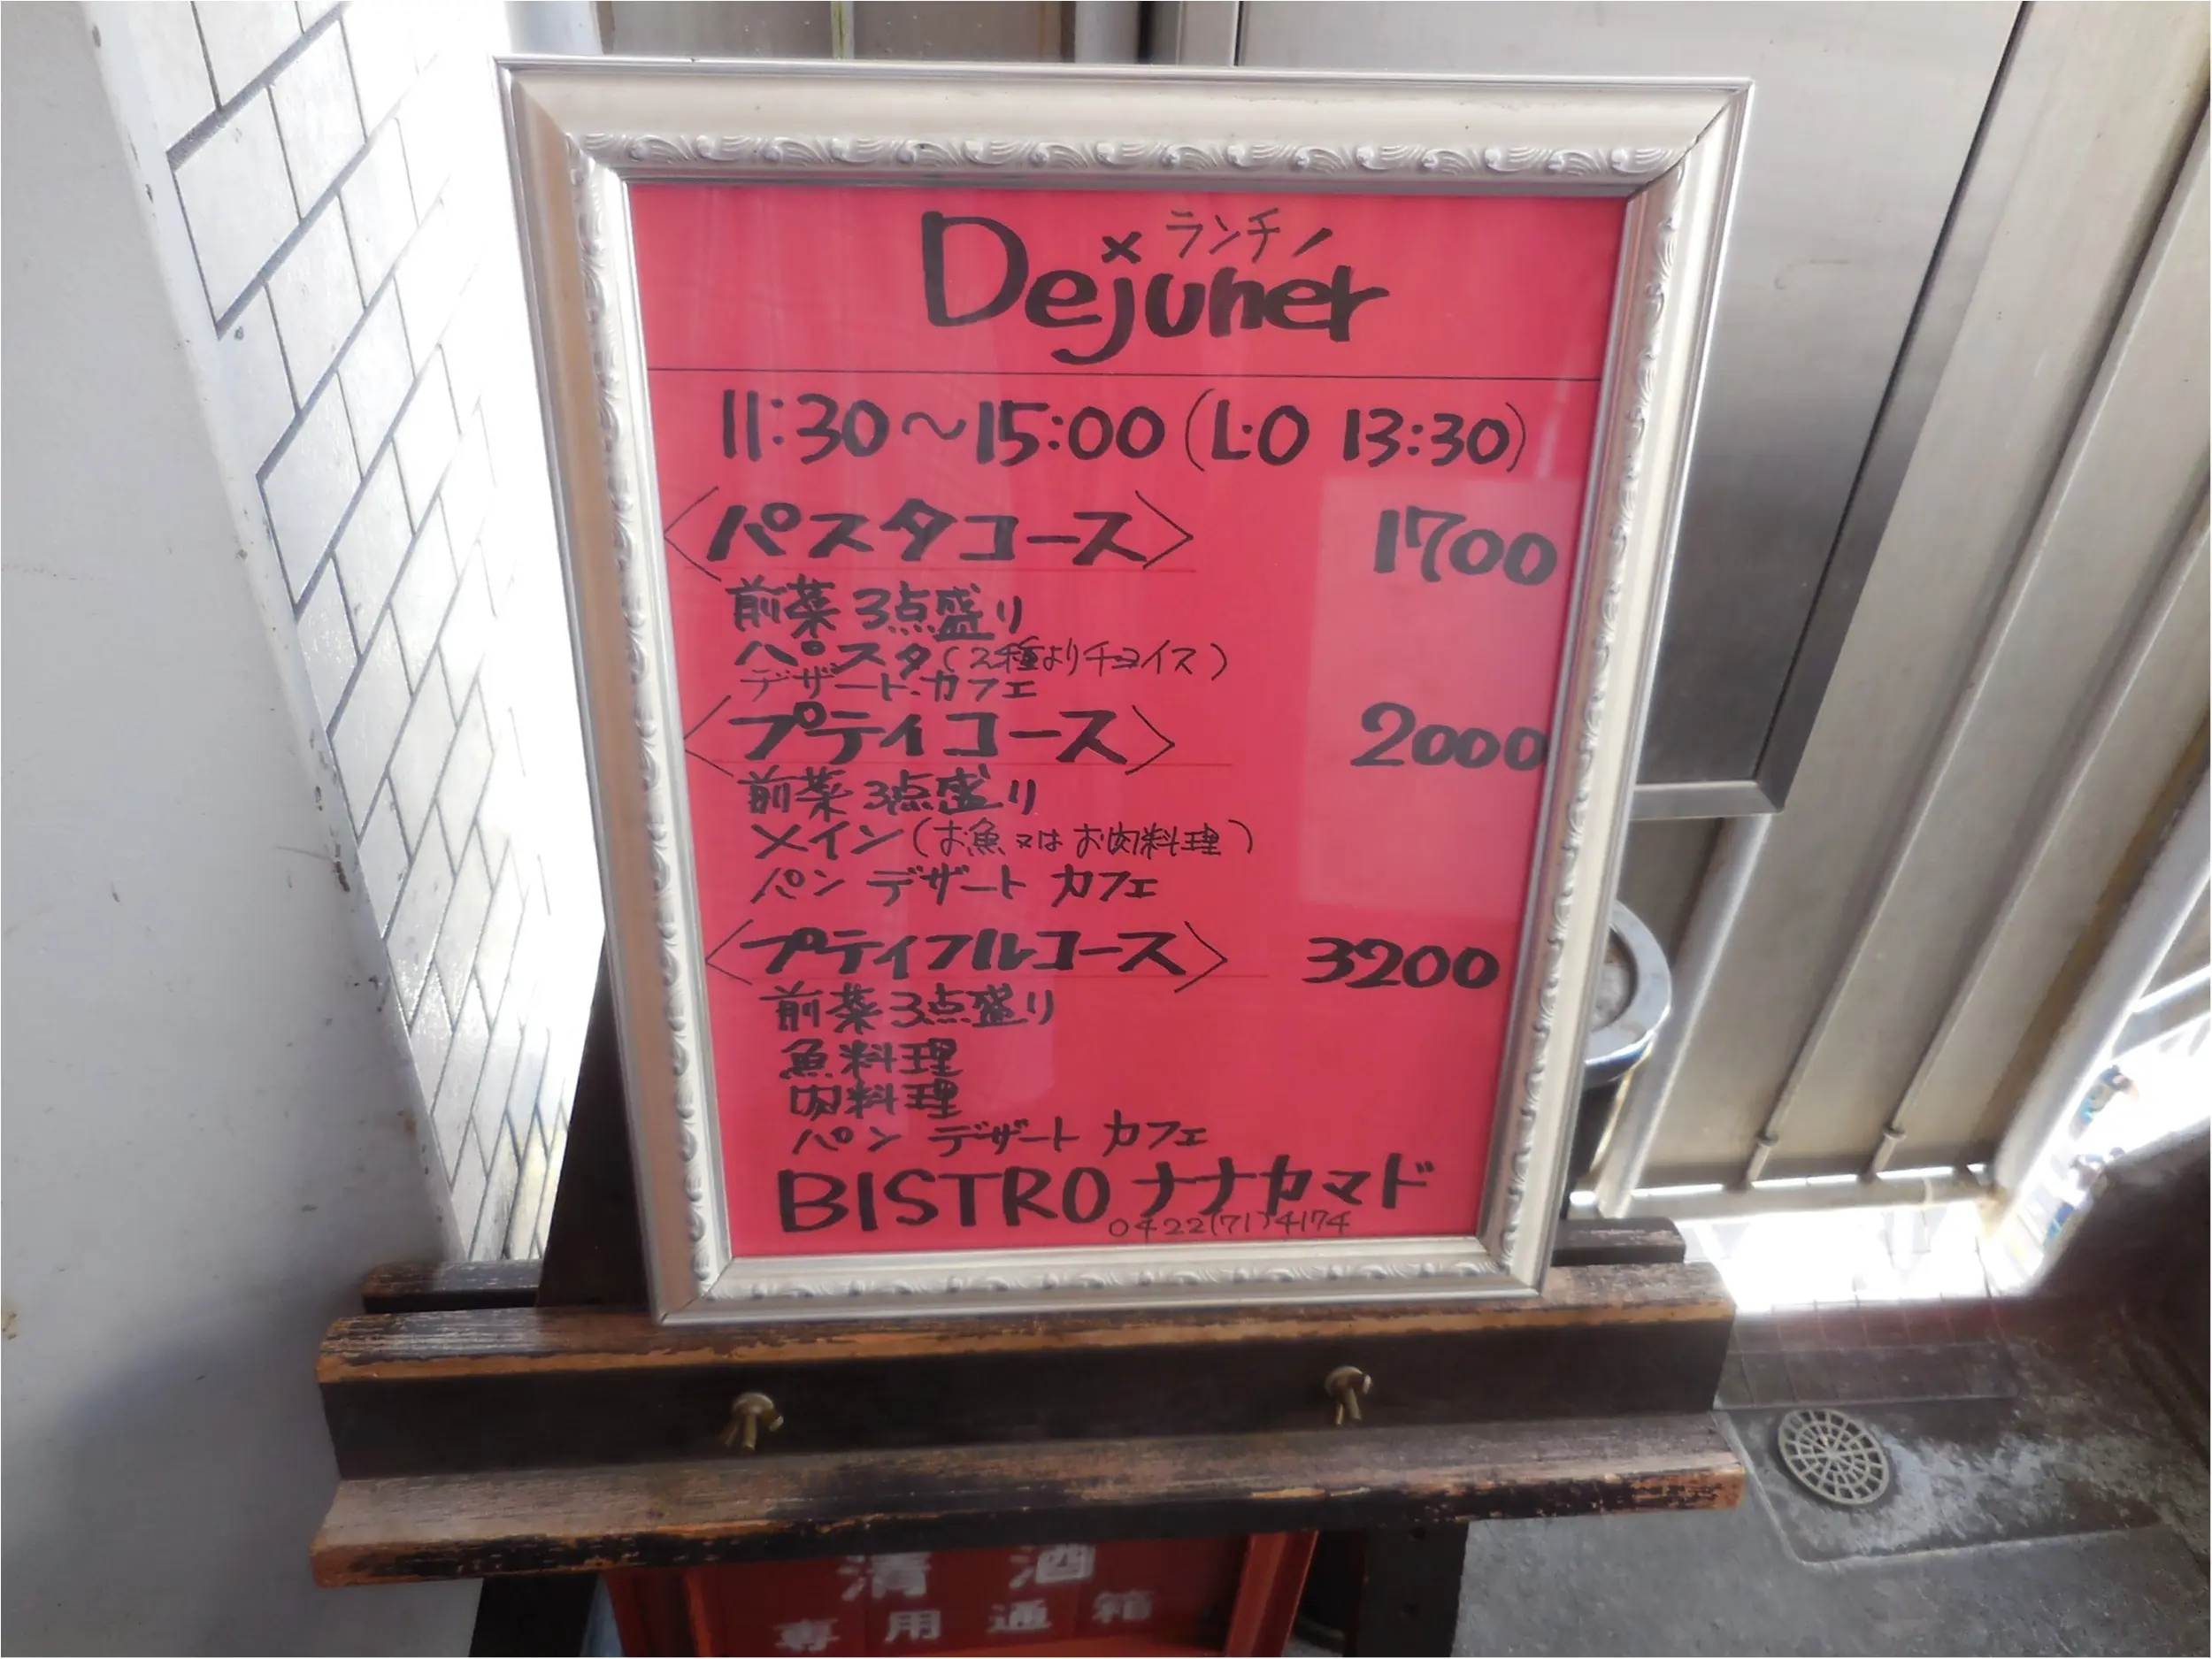 ランチ
Dejuner
11:30～15:00(L・O 13:30)
〈パスタコース〉 1700
前菜3点盛り
パスタ(2種よりチョイス)
デザート・カフェ
〈プティコース〉 2000
前菜3点盛り
メイン(お魚又はお肉料理)
パン デザート カフェ
〈プティフルコース〉 3200
前菜3点盛り
魚料理
肉料理
パン デザート カフェ
BISTROナナカマド
0422(71)4174
清酒
専用通箱